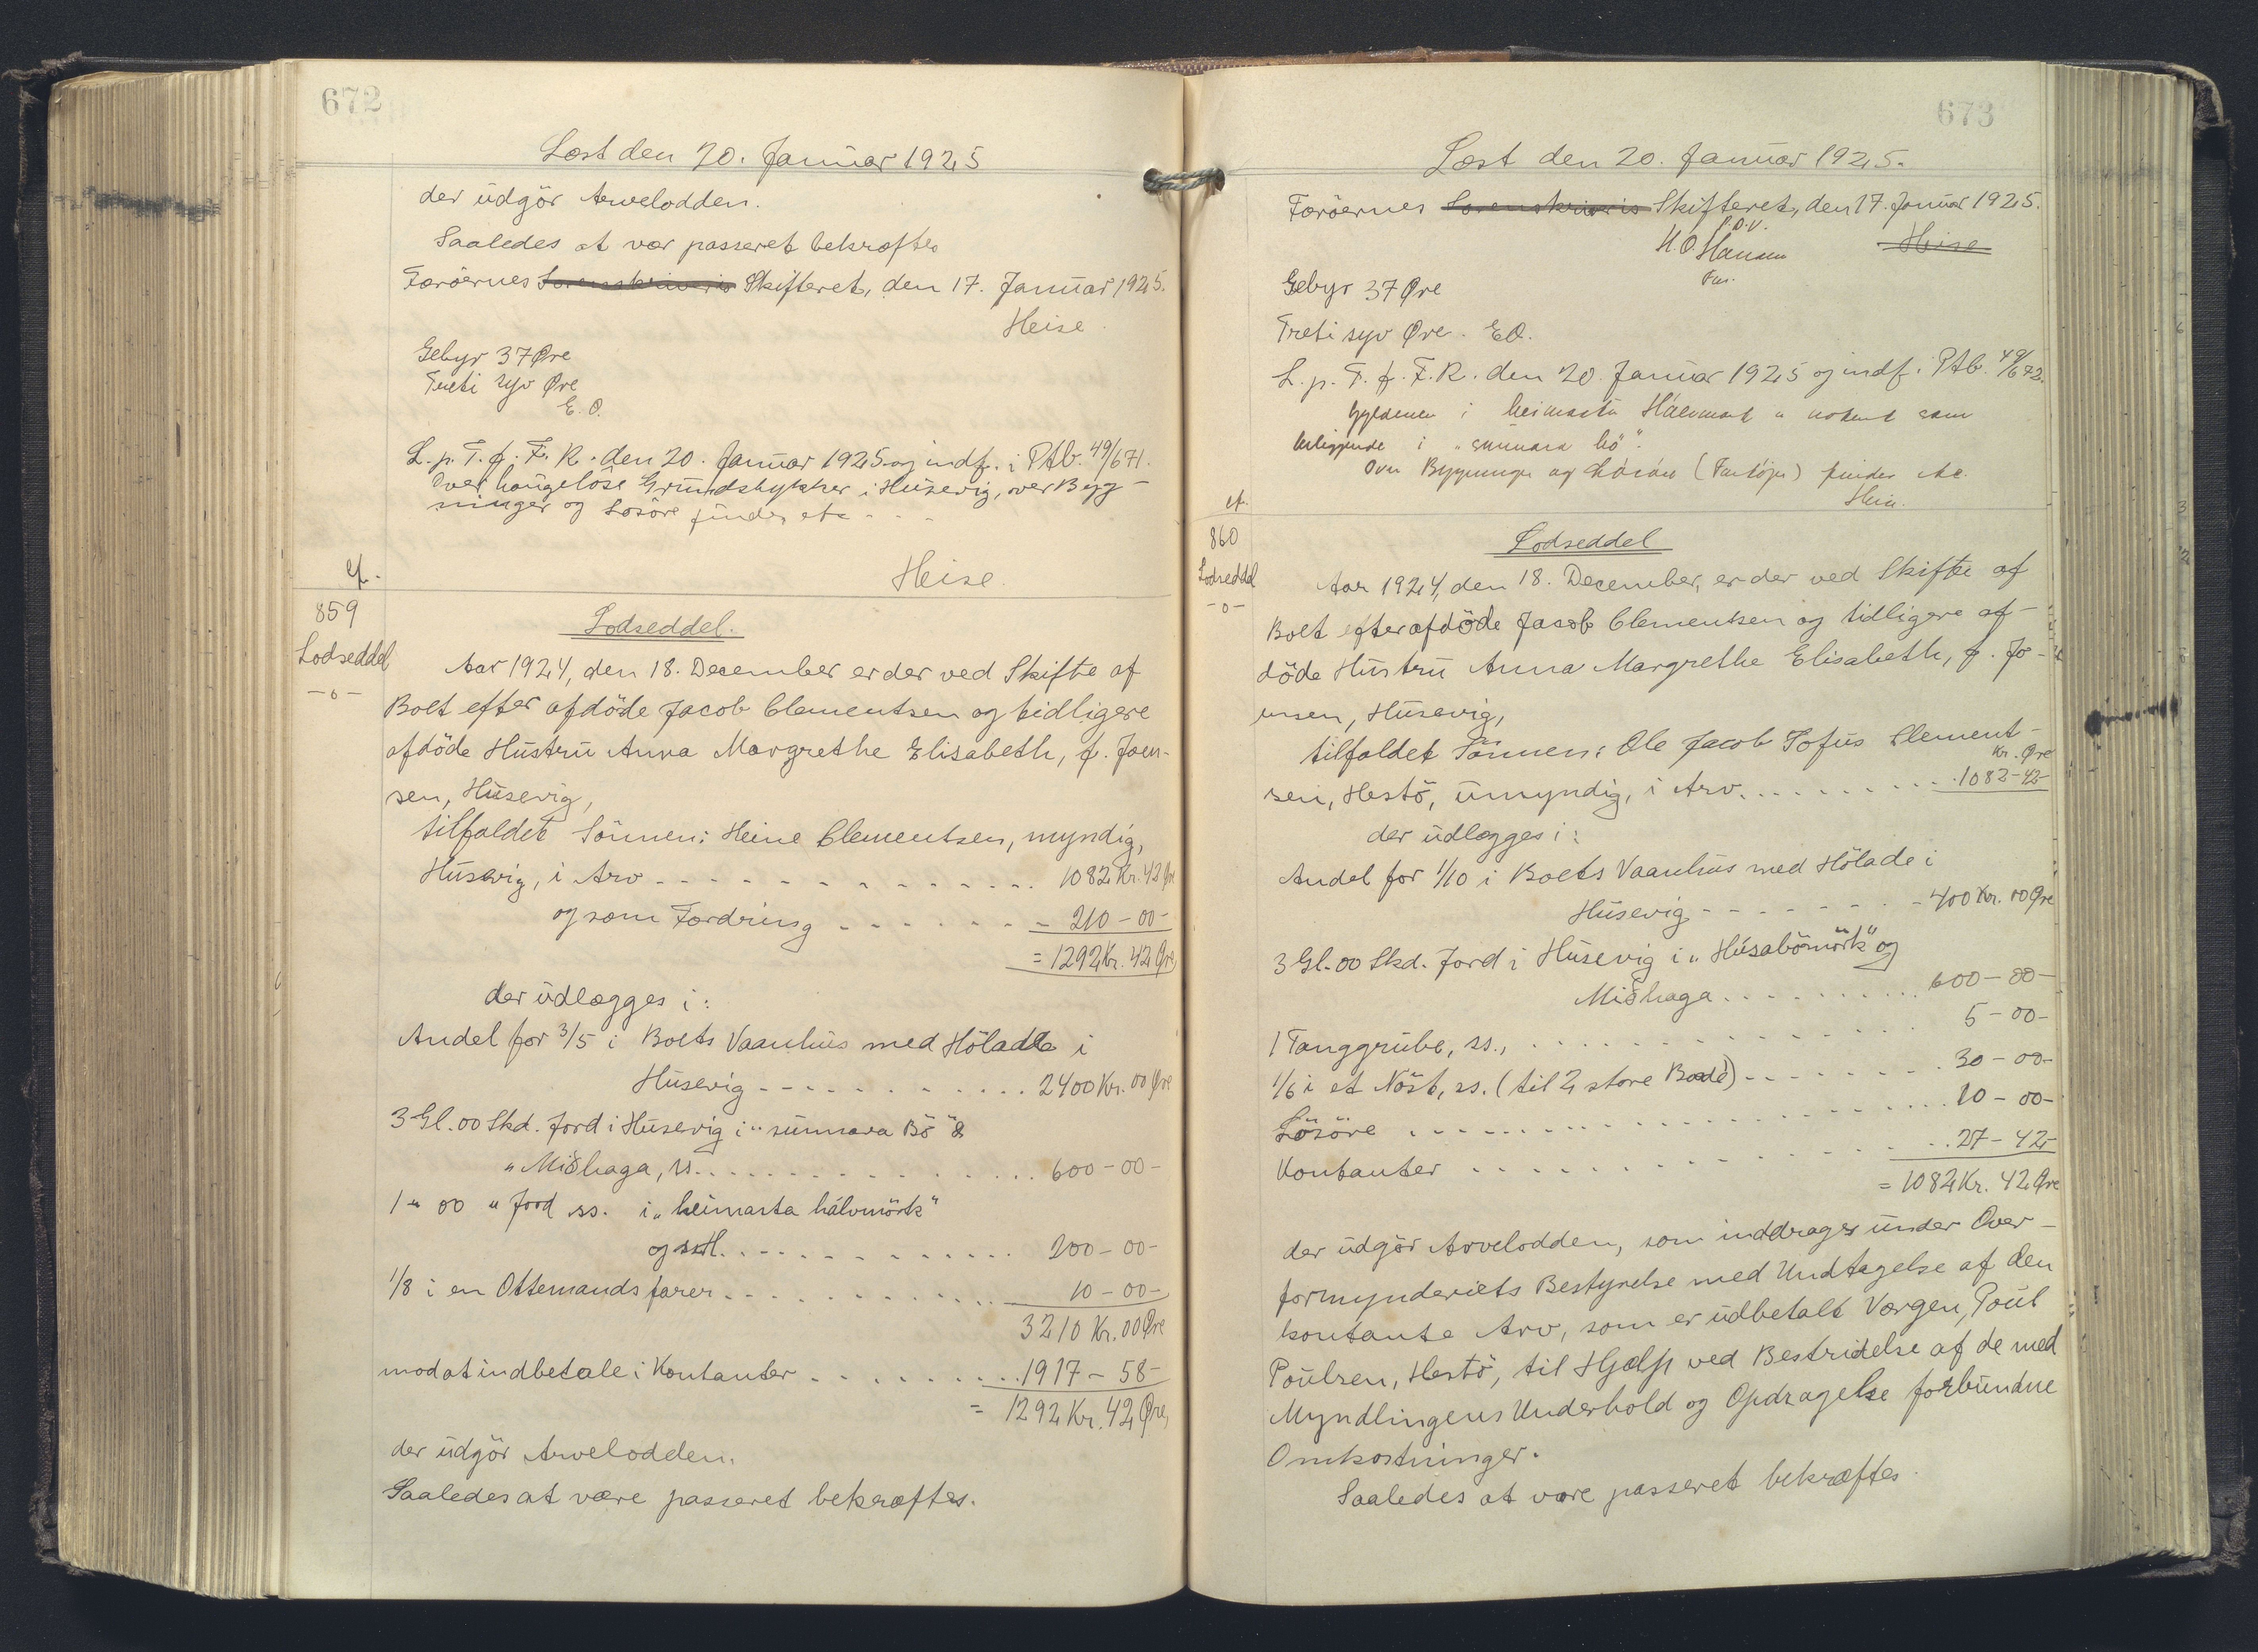 672
Læst den 20. Januar 1925
der udgör Arvelodden.
Saaledes at vær passeret bekræftes
Færöernes Sorenskriveris Skifteret, den 17. Januar 1925.
Heise
Gebyr 37 Øre
Treti syv Øre
E. O.
L. p. T. f. F. R. den 20. Januar 1925 og indf. i Ptb. 49/671.
Over haugelöse Grundstykker i Husevig, over Byg-
ninger og Lösöre findes etc - - -
Heise.
cf.
859
Lodseddel
-o-
Lodseddel.
Aar 1924, den 18. December er der ved Skifte af
Boet efter afdöde Jacob Clementsen og tidligere
afdöde Hustru Anna Margrethe Elisabeth, f. Joen-
sen, Husevig,
tilfaldet Sönnen: Heine Clementsen, myndig,
Husevig, i Arv - - - - - - - - - 1082 Kr. 42 Øre
og som Fordring - - - - - - - 210-00-
= 1292 Kr. 42 Øre,
der udlægges i:
Andel for 3/5 i Boets Vaanhus med Hölade i
Husevig - - - - - - - - - 2400 Kr. 00 Øre
3 Gl. 00 Skd. Jord i Husevig i "sunnara Bö" &
"Miðhaga, ss. - - - - - - - - 600-00-
1 " 00 " Jord ss. i "heimasta hálvmörk"
og sstl. - - - - - - - - - 200-00-
1/8 i en Ottemandsfarer - - - - - - - 10-00-
3210 Kr. 00 Øre
mod at indbetale i Kontanter - - - - - - 1917-58-
= 1292 Kr. 42 Øre,
der udgör Arvelodden.
Saaledes at være passeret bekræftes.
673
Læst den 20. Januar 1925.
Færöernes Sorenskriveris Skifteret, den 17. Januar 1925.
P.D.V.
H. O. Hansen Heise
Fm.
Gebyr 37 Øre
Treti syv Øre. E.O.
L. p. T. f. F. R. den 20. Januar 1925 og indf. i Ptb. 49/672.
Gyldenen i heimasta Hálvmørk er noteret som
beliggende i "sunnara bö".
Over Bygninger og Lösöre (Fartöjer) findes etc.
Heise.
cf.
860
Lodseddel
-o-
Lodseddel
Aar 1924, den 18. December, er der ved Skifte af
Boet efter afdöde Jacob Clementsen og tidligere af-
döde Hustru Anna Margrethe Elisabeth, f. Jo-
ensen, Husevig,
tilfaldet Sönnen: Ole Jacob Sofus Clement-
Kr. Øre
sen, Hestö, umyndig, i Arv. - - - - - - - 1082-42-
der udlægges i:
Andel for 1/10 i Boets Vaanhus med Hölade i
Husevig - - - - - - - 400 Kr. 00 Øre
3 Gl. 00 Skd. Jord i Husevig i "Húsabömörk" og
Miðhaga - - - - - - - 600-00-
1 Tanggrube, ss., - - - - - - - 5-00-
1/6 i et Nöst, ss. (til 2 store Baade) - - - - - - 30-00-
Lösöre - - - - - - - - - 10-00-
Kontanter - - - - - - - - 27-42-
= 1082 Kr. 42 Øre
der udgör Arvelodden, som inddrages under Over-
formynderiets Bestyrelse med Undtagelse af den
kontante Arv, som er udbetalt Værgen, Poul
Poulsen, Hestö, til Hjælp ved Bestridelse af de med
Myndlingens Underhold og Opdragelse forbundne
Omkostninger.
Saaledes at være passeret bekræftes.